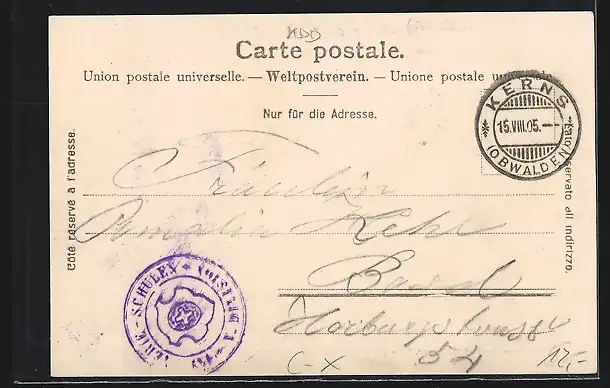 Carte postale.
Union postale universelle. — Weltpostverein. — Unione postale universale.
Nur für die Adresse.
Côté réservé à l'adresse.
Lato riservato all indirizzo.
KERNS
15.VIII.05.—
(OBWALDEN)
Fräulein
Amalie Kehl
Basel
Horburgstrasse
54
SCHULEN
C-X
12,-